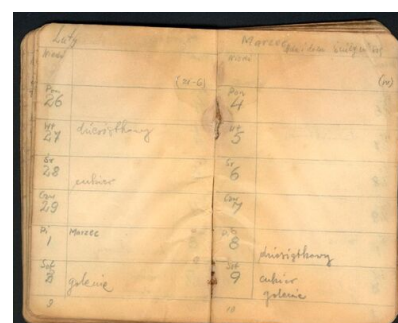 Luty
Niedz
Pon
26
Wt
27 dziesiątkowy
Śr
28
cukier
Czw
29
Pi Marzec
1
Sob
2 golenie
3
Marzec
Niedz
(IV)
Pon
4
Wt
5
Śr
6
Czw
7
Pi
8
dziesiątkowy
Sob
9 cukier
golenie
10